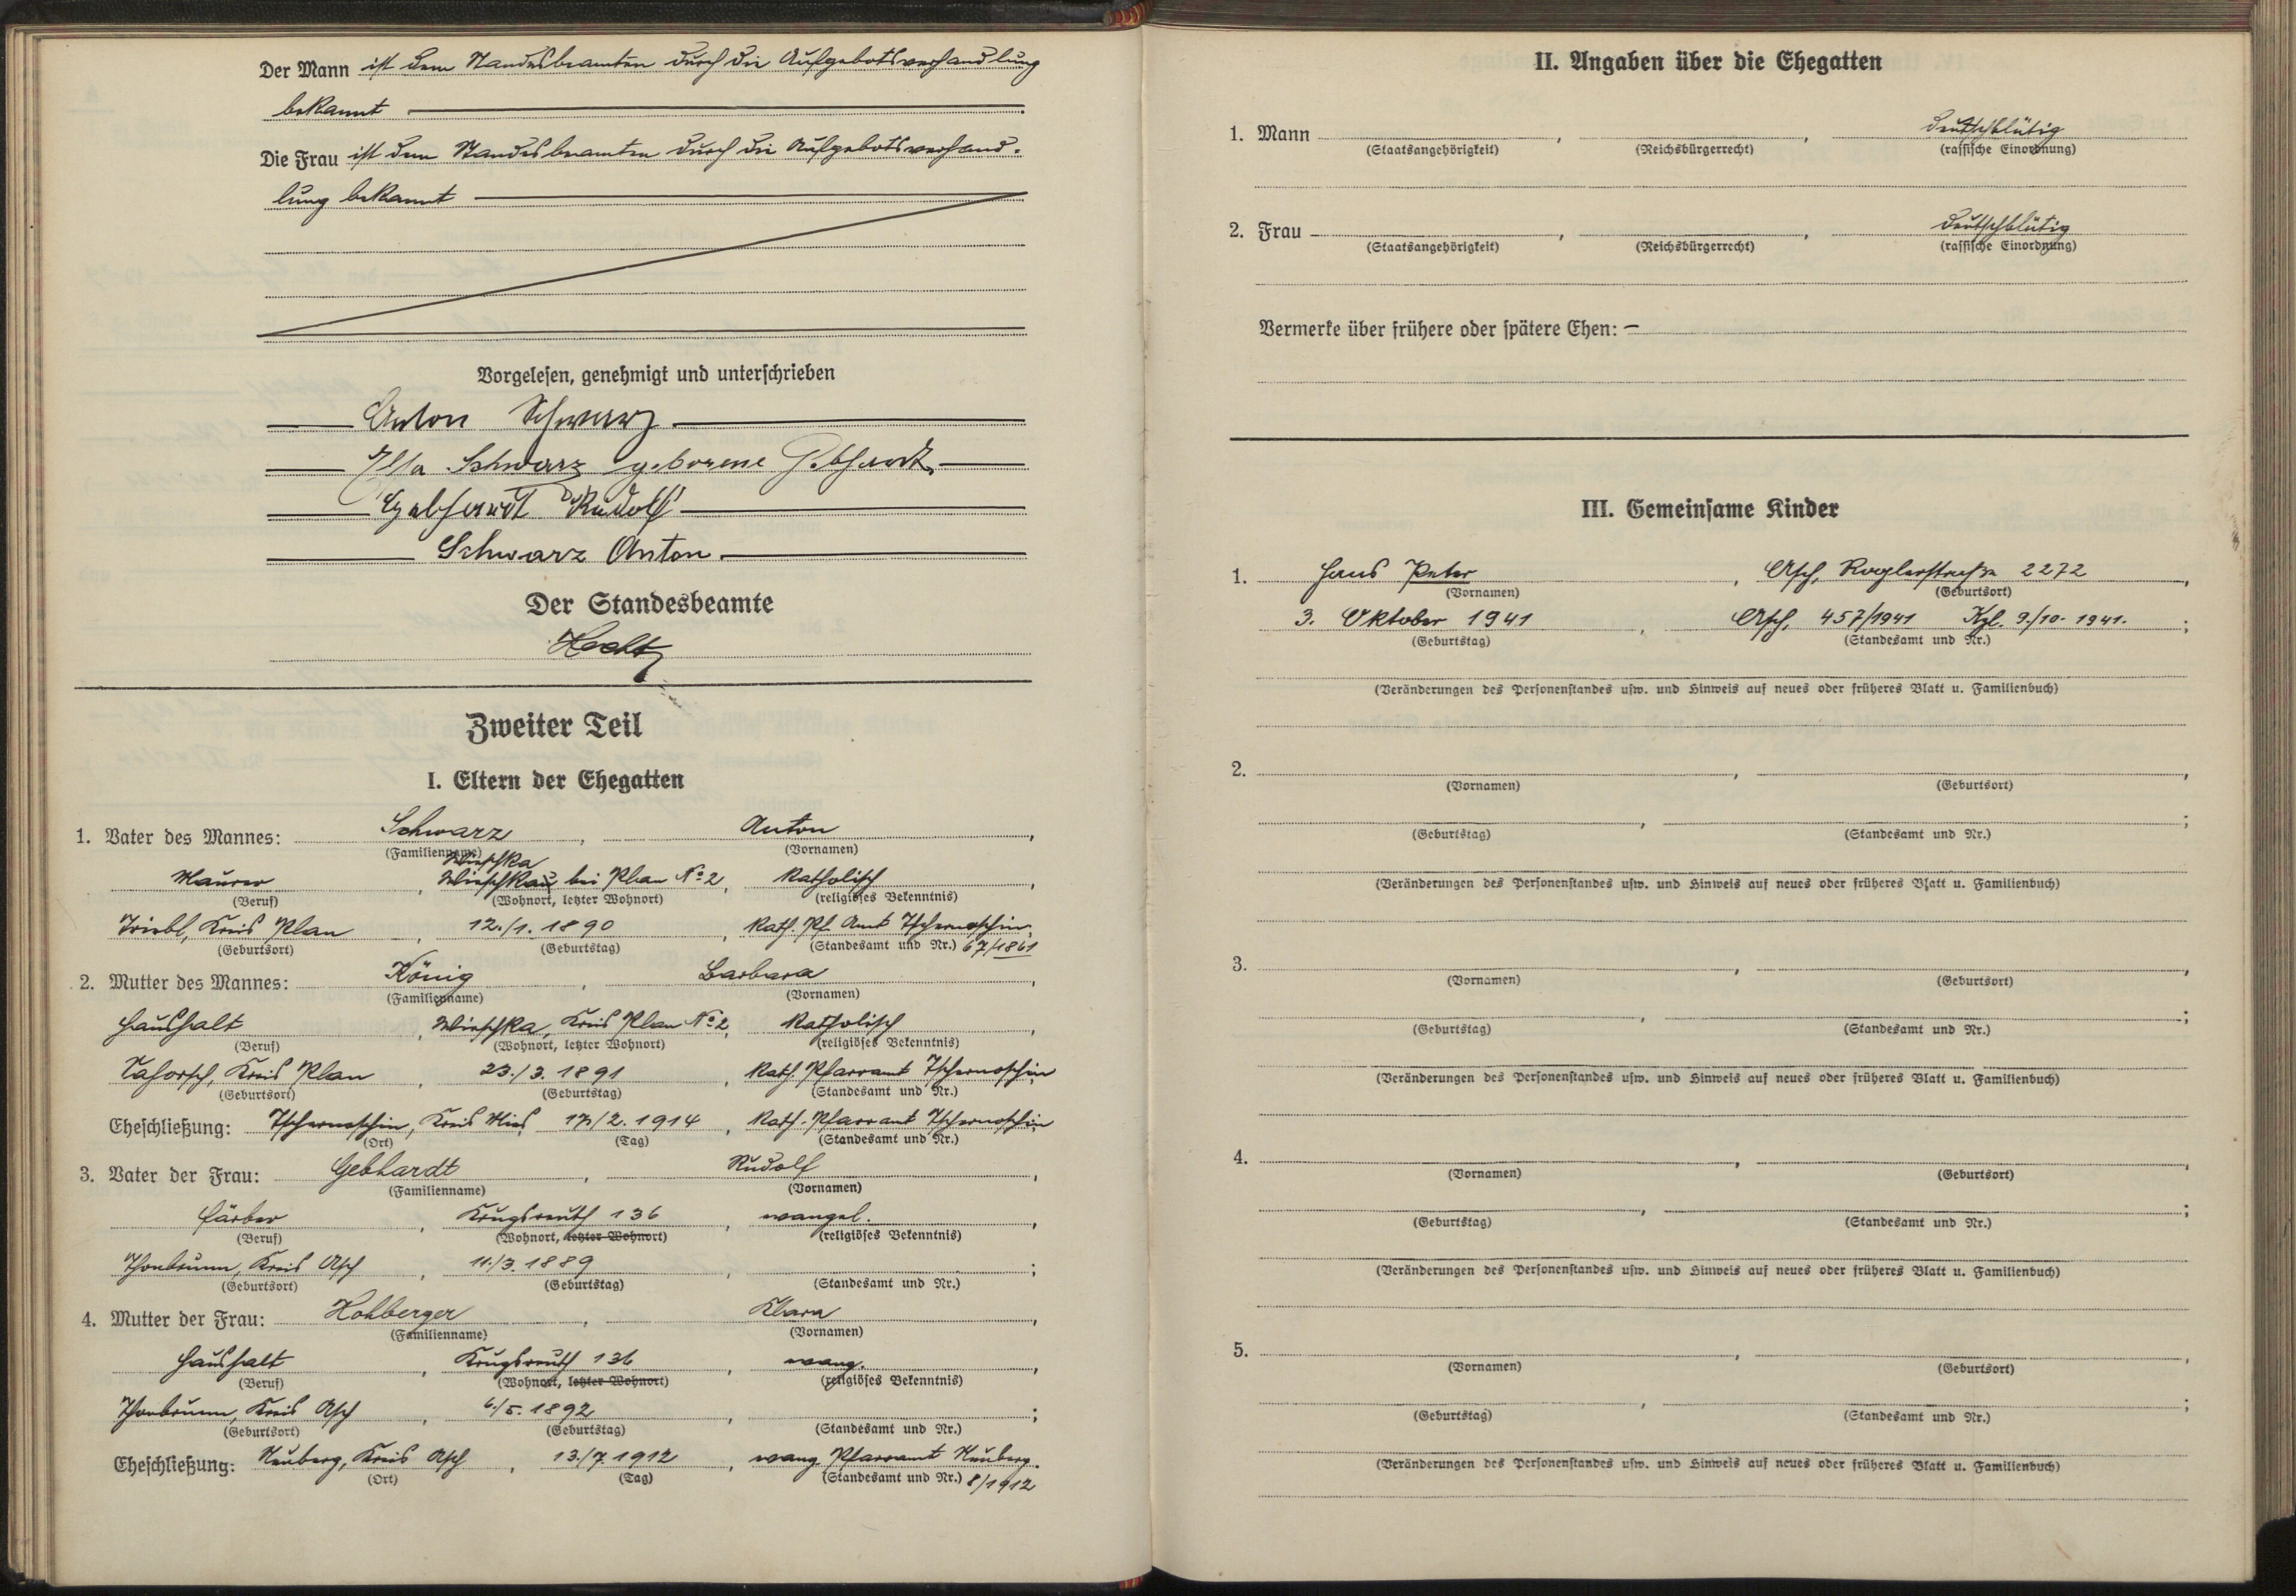 Der Mann ist dem Standesbeamten durch die Aufgebotsverhandlung
bekannt
Die Frau ist dem Standesbeamten durch die Aufgebotsverhand-
lung bekannt
Vorgelesen, genehmigt und unterschrieben
Anton Schwarz
Ilsa Schwarz geborene Gebhardt
Gebhardt Rudolf
Schwarz Anton
Der Standesbeamte
Zweiter Teil
I. Eltern der Ehegatten
1. Vater des Mannes: Schwarz, Anton,
(Familienname) (Vornamen)
Wieschka
Maurer, Wieschkau bei Plan No 2, katholisch,
(Beruf) (Wohnort, letzter Wohnort) (religiöses Bekenntnis)
Triebl, Kreis Plan, 12./1. 1890, Kath. Pf. Amt Tschernoschin,
(Geburtsort) (Geburtstag) (Standesamt und Nr.) 67/1861
2. Mutter des Mannes: König, Barbara,
(Familienname) (Vornamen)
Haushalt, Wieschka, Kreis Plan No 2, katholisch,
(Beruf) (Wohnort, letzter Wohnort) (religiöses Bekenntnis)
Kreis Plan, 23./3. 1891, Kath. Pfarramt Tschernoschin
(Geburtsort) (Geburtstag) (Standesamt und Nr.)
Eheschließung: Tschernoschin, Kreis Mies, 17./2. 1914, Kath. Pfarramt Tschernoschin
(Ort) (Tag) (Standesamt und Nr.)
3. Vater der Frau: Gebhardt, Rudolf,
(Familienname) (Vornamen)
Färber, Krugsreuth 136, evangel.,
(Beruf) (Wohnort, letzter Wohnort) (religiöses Bekenntnis)
Thonbrunn, Kreis Asch, 11./3. 1889, ;
(Geburtsort) (Geburtstag) (Standesamt und Nr.)
4. Mutter der Frau: Hohberger, Klara,
(Familienname) (Vornamen)
Haushalt, Krugsreuth 136, evang.,
(Beruf) (Wohnort, letzter Wohnort) (religiöses Bekenntnis)
Thonbrunn, Kreis Asch, 6./5. 1892, ;
(Geburtsort) (Geburtstag) (Standesamt und Nr.)
Eheschließung: Neuberg, Kreis Asch, 13./7. 1912, evang. Pfarramt Neuberg.
(Ort) (Tag) (Standesamt und Nr.) 8/1912
II. Angaben über die Ehegatten
1. Mann , , deutschblütig
(Staatsangehörigkeit) (Reichsbürgerrecht) (rassische Einordnung)
2. Frau , , deutschblütig
(Staatsangehörigkeit) (Reichsbürgerrecht) (rassische Einordnung)
Vermerke über frühere oder spätere Ehen: –
III. Gemeinsame Kinder
1. Hans Peter, Asch, Roglerstraße 2272,
(Vornamen) (Geburtsort)
3. Oktober 1941, Asch, 457/1941 Kzl. 9./10. 1941. ;
(Geburtstag) (Standesamt und Nr.)
(Veränderungen des Personenstandes usw. und Hinweis auf neues oder früheres Blatt u. Familienbuch)
2. , ,
(Vornamen) (Geburtsort)
, ;
(Geburtstag) (Standesamt und Nr.)
(Veränderungen des Personenstandes usw. und Hinweis auf neues oder früheres Blatt u. Familienbuch)
3. , ,
(Vornamen) (Geburtsort)
, ;
(Geburtstag) (Standesamt und Nr.)
(Veränderungen des Personenstandes usw. und Hinweis auf neues oder früheres Blatt u. Familienbuch)
4. , ,
(Vornamen) (Geburtsort)
, ;
(Geburtstag) (Standesamt und Nr.)
(Veränderungen des Personenstandes usw. und Hinweis auf neues oder früheres Blatt u. Familienbuch)
5. , ,
(Vornamen) (Geburtsort)
, ;
(Geburtstag) (Standesamt und Nr.)
(Veränderungen des Personenstandes usw. und Hinweis auf neues oder früheres Blatt u. Familienbuch)